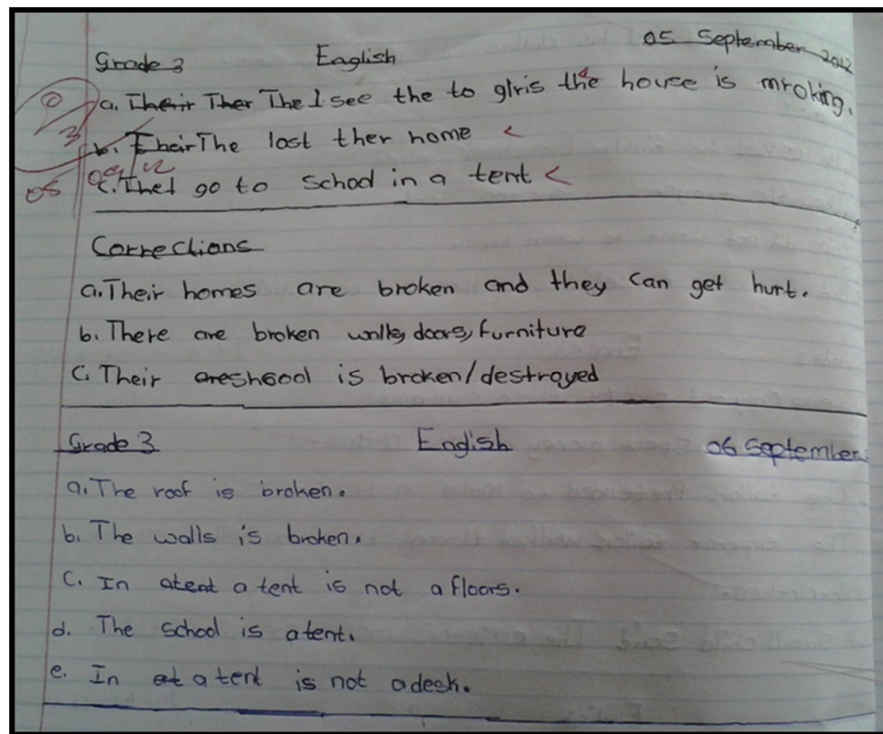 Grade 3 English 05 September 2012
a. Their Ther The I see the to glris the house is mroking.
b. Their The lost ther home
c. Thet go to school in a tent
0/3
05/09/12
Corrections
a. Their homes are broken and they can get hurt.
b. There are broken walls, doors, furniture
C. Their areshcool is broken/destroyed
Grade 3 English 06 September
a. The roof is broken.
b. The walls is broken.
C. In atent a tent is not a floors.
d. The school is atent.
e. In at a tent is not adesk.